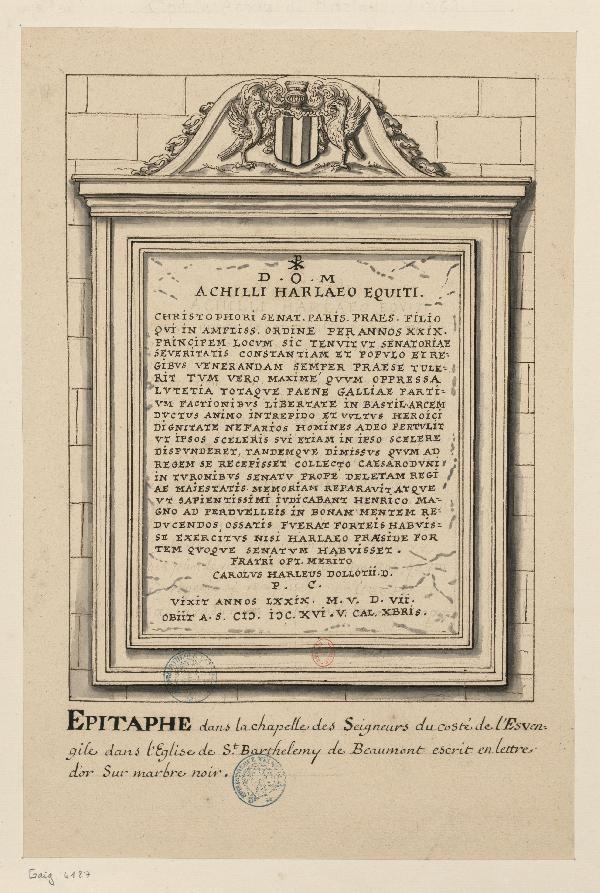 D. O. M
ACHILLI HARLAEO EQUITI.
CHRISTOPHORI SENAT. PARIS. PRAES. FILIO
QVI IN AMPLISS. ORDINE PER ANNOS XXIX.
PRINCIPEM LOCVM SIC TENVIT VT SENATORIAE
SEVERITATIS CONSTANTIAM ET POPVLO ET RE-
GIBVS VENERANDAM SEMPER PRAESE TULE-
RIT TVM VERO MAXIME QVVM OPPRESSA
LVTETIA TOTAQVE PAENE GALLIAE PARTI-
VM FACTIONIBVS LIBERTATE IN BASTIL. ARCEM
DVCTVS ANIMO INTREPIDO ET VVLTVS HEROICI
DIGNITATE NEFARIOS HOMINES ADEO PERTVLIT
VT IPSOS SCELERIS SVI ETIAM IN IPSO SCELERE
DISPVNDERET, TANDEMQVE DIMISSVS QVVM AD
REGEM SE RECEPISSET COLLECTO CAESARODVNI
IN TVRONIBVS SENATV PROPE DELETAM REGI
AE MAIESTATIS MEMORIAM REPARAVIT ATQVE
VT SAPIENTISSIMI IVDICABANT HENRICO MA-
GNO AD PERDVELLEIS IN BONAM MENTEM RE-
DVCENDOS, OSSATIS FVERAT FORTEIS HABVIS-
SE EXERCITVS NISI HARLAEO PRÆSIDE FOR
TEM QVOQVE SENATVM HABVISSET.
FRATRI OPT. MERITO
CAROLVS HARLEUS DOLLOTII. D.
P. C.
VIXIT ANNOS LXXIX. M. V. D. VII.
OBIIT A. S. CIↃ. IↃC. XVI. V. CAL. XBRIS.
EPITAPHE dans la chapelle des Seigneurs du costé de l'Esven-
gile dans l'Eglise de St. Barthelemy de Beaumont escrit en lettre
d'or Sur marbre noir.
Gaig 4127